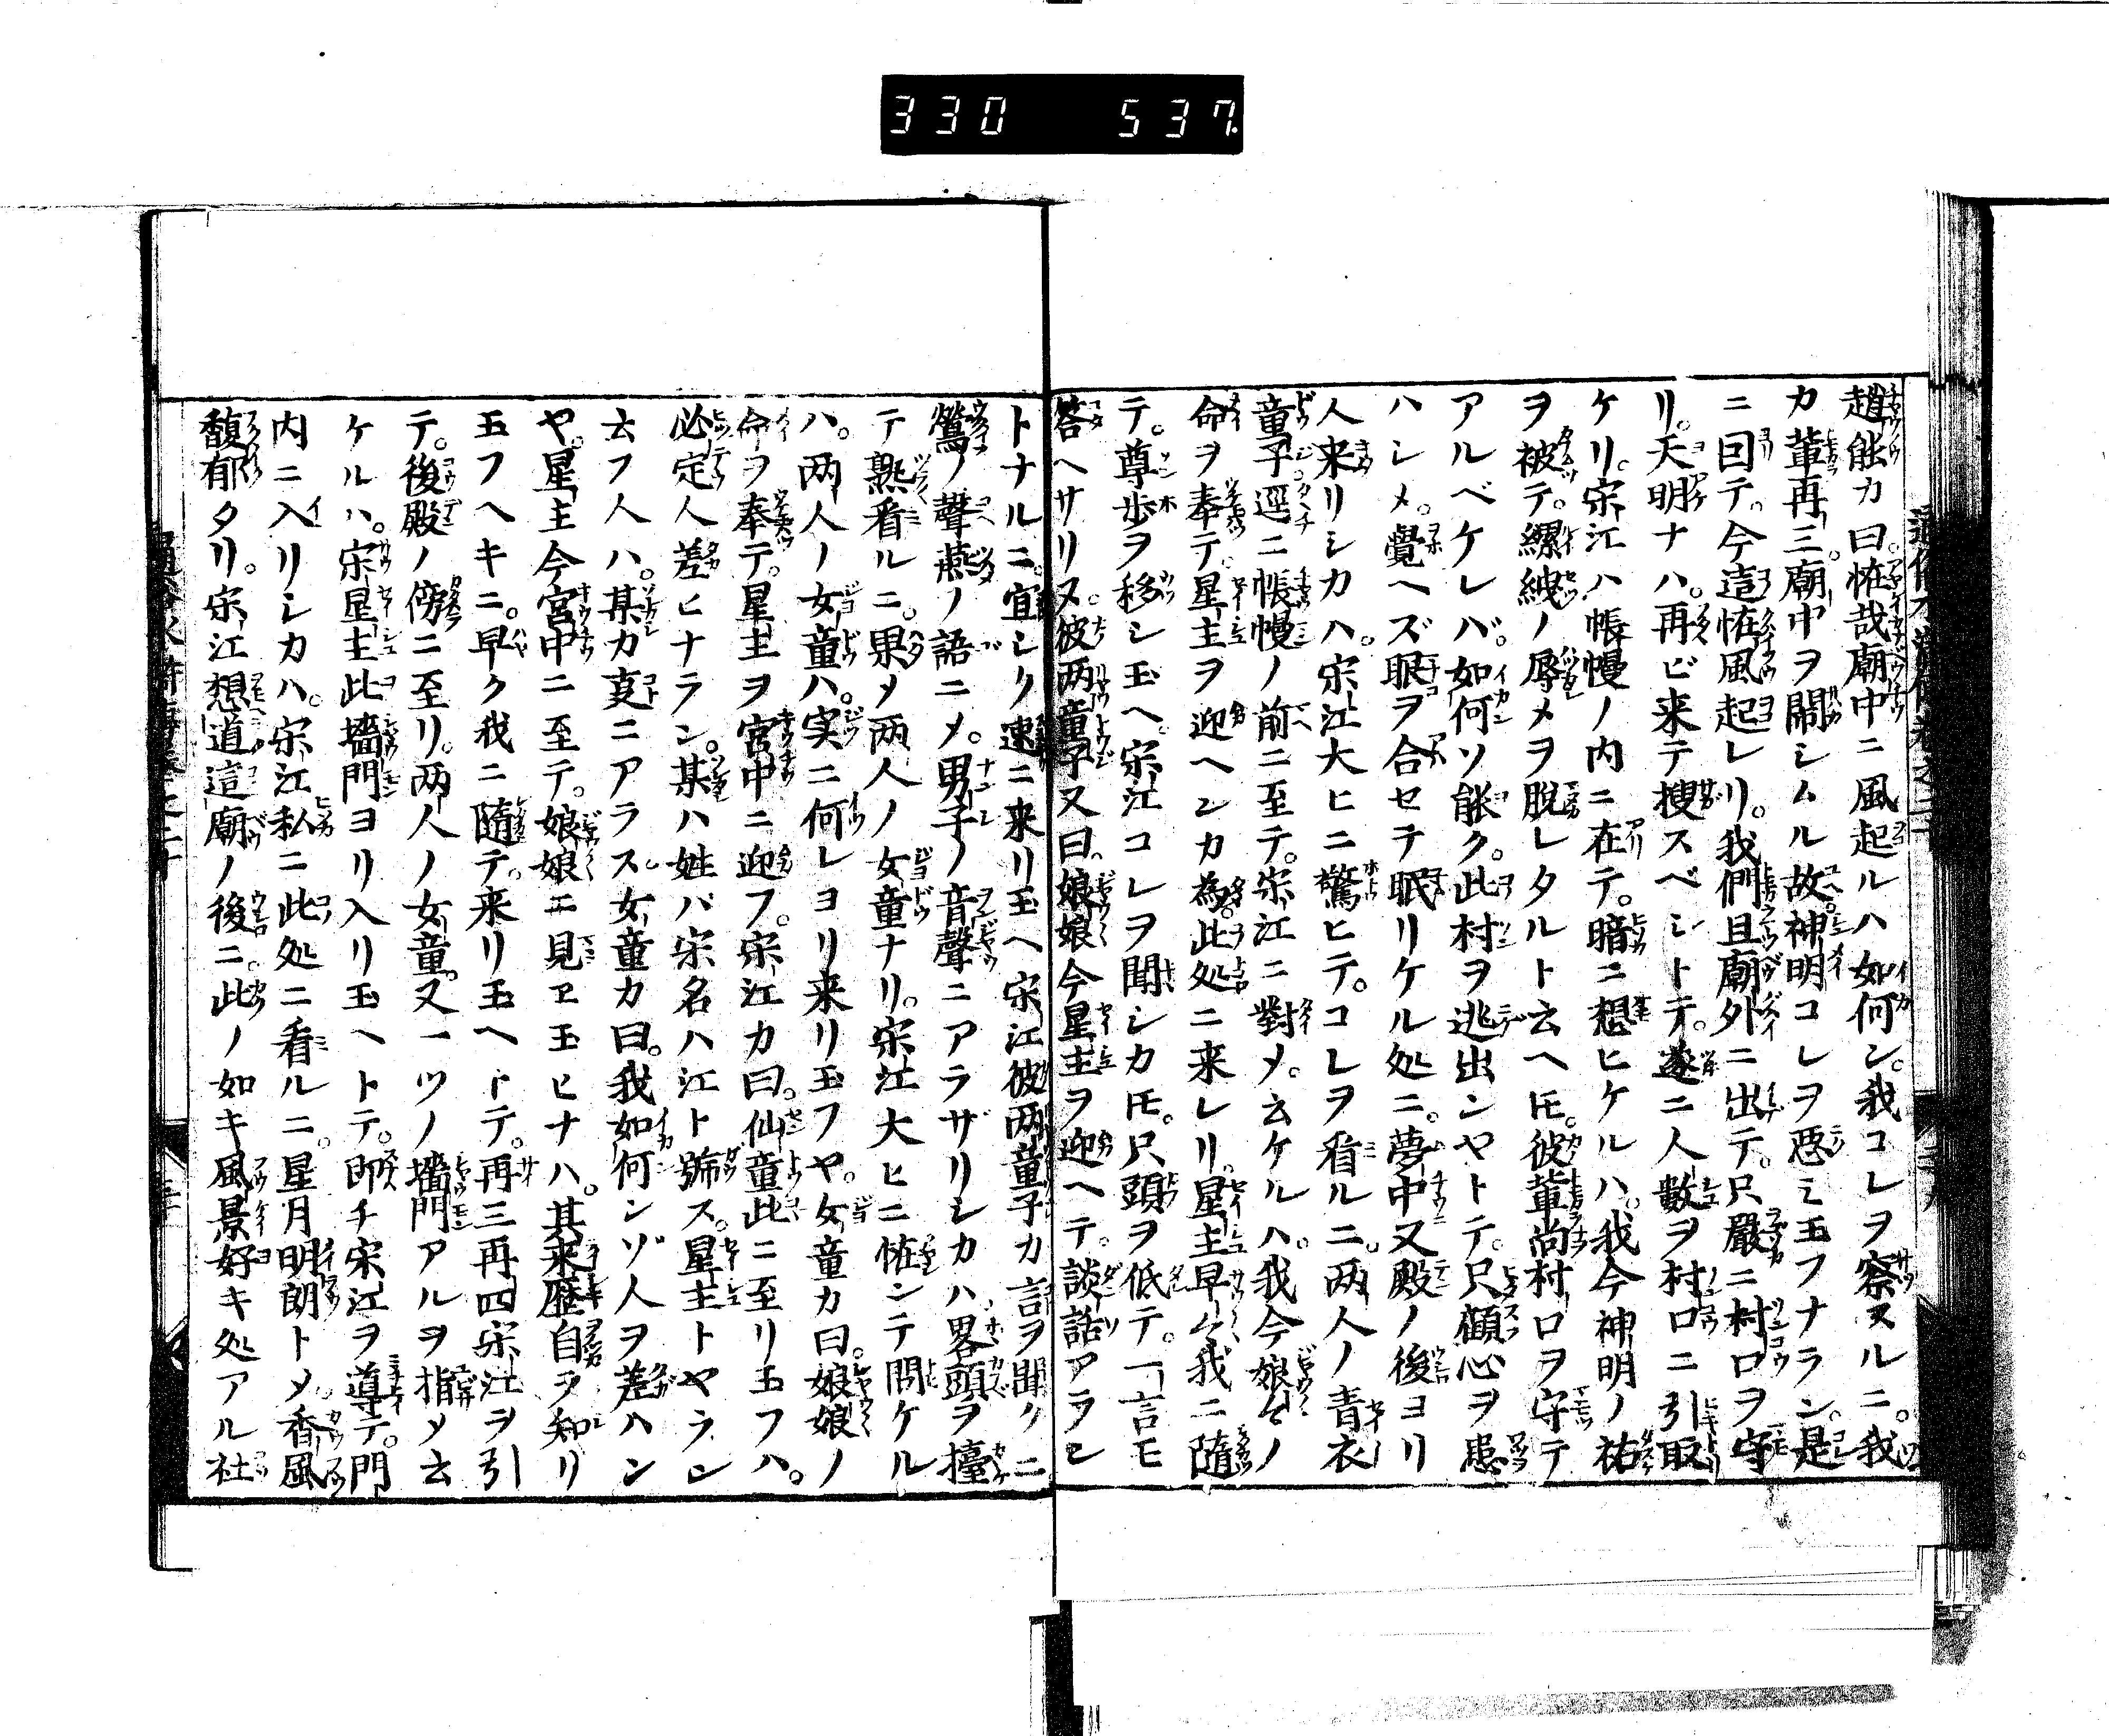 330 537.
趙能カ曰。恠哉廟中ニ風起ルハ如何ン。我コレヲ察スルニ。我
カ輩再三。廟中ヲ鬧シムル故。神明コレヲ悪ミ玉フナラン。是
ニ囙テ。今這恠風起レリ。我們且廟外ニ出テ。只嚴ニ村口ヲ守
リ。天明ナハ。再ビ来テ搜スベシトテ。遂ニ人數ヲ村口ニ引取
ケリ。宋江ハ帳幔ノ内ニ在テ。暗ニ想ヒケルハ。我今神明ノ祐
ヲ被テ。縲絏ノ辱メヲ脱レタルト云ヘ𪜈。彼輩尚村口ヲ守テ
アルベケレバ。如何ソ能ク。此村ヲ逃出ンヤトテ。只顧心ヲ患
ハシメ。覺ヘズ眼ヲ合セテ眠リケル処ニ。夢中又殿ノ後ヨリ
人来リシカハ。宋江大ヒニ驚ヒテ。コレヲ看ルニ。两人ノ青衣
童子逕ニ帳幔ノ前ニ至テ。宋江ニ對メ。云ケルハ。我今娘々ノ
命ヲ奉テ。星主ヲ迎ヘンカ為。此処ニ来レリ。星主早ク我ニ隨
テ。尊歩ヲ移シ玉ヘ。宋江コレヲ聞シカ𪜈。只頭ヲ低テ。一言モ
答ヘサリヌ。彼两童子又曰。娘娘今星主ヲ迎ヘテ。談話アラン
トナルニ。宜シク速ニ来リ玉ヘ宋江彼两童子カ言ヲ聞クニ
鶯ノ聲燕ノ語ニメ。男子ノ音聲ニアラザリシカハ畧頭ヲ擡
テ熟看ルニ。果メ两人ノ女童ナリ。宋江大ヒニ恠ンテ問ケル
ハ。两人ノ女童ハ。実ニ何レヨリ来リ玉フヤ。女童カ曰。娘娘ノ
命ヲ奉テ。星主ヲ宮中ニ迎フ。宋江カ曰。仙童此ニ至リ玉フハ。
必定人差ヒナラン。某ハ姓バ宋名ハ江ト號ス。星主トヤラン
云フ人ハ。某カ叓ニアラス女童カ曰。我如何ンゾ人ヲ差ハン
ヤ。星主今宮中ニ至テ。娘娘エ見ヱ玉ヒナハ。其来歴自ラ知リ
玉フヘキニ。早ク我ニ隨テ。来リ玉ヘトテ。再三再四宋江ヲ引
テ。後殿ノ傍ニ至リ。两人ノ女童。又一ツノ墻門アルヲ指メ云
ケルハ。宋星主此墻門ヨリ入リ玉ヘトテ。即チ宋江ヲ導テ。門
内ニ入リシカハ。宋江私ニ此処ニ看ルニ。星月明朗トメ。香風
馥郁タリ。宋江想道這廟ノ後ニ。此ノ如キ風景好キ処アル社